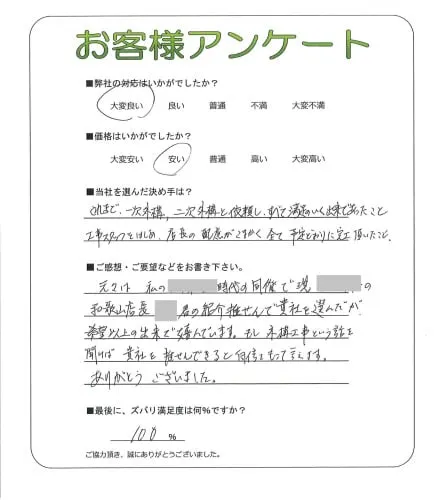 お客様アンケート
■弊社の対応はいかがでしたか?
大変良い 良い 普通 不満 大変不満
■価格はいかがでしたか?
大変安い 安い 普通 高い 大変高い
■当社を選んだ決め手は?
これまで、一次外構、二次外構と依頼し、すべて満足のいく出来であったこと
工事スタッフをはじめ、店長の配慮がこまやかく全て予定どおりに完工頂いたこと、
■ご感想・ご要望などをお書き下さい。
元々は 私の 時代の同僚で現 の
和歌山店長 君の紹介推せんで貴社を選んだが
希望以上の出来で喜んでいます。もし 外構工事という話を
聞けば 貴社を推せんできると自信をもって言えます。
ありがとう ございました。
■最後に、ズバリ満足度は何%ですか?
100 %
ご協力頂き、誠にありがとうございました。